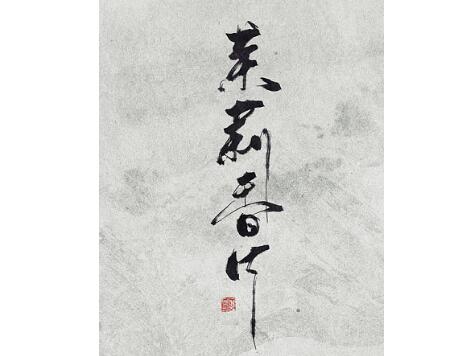 茉莉香片